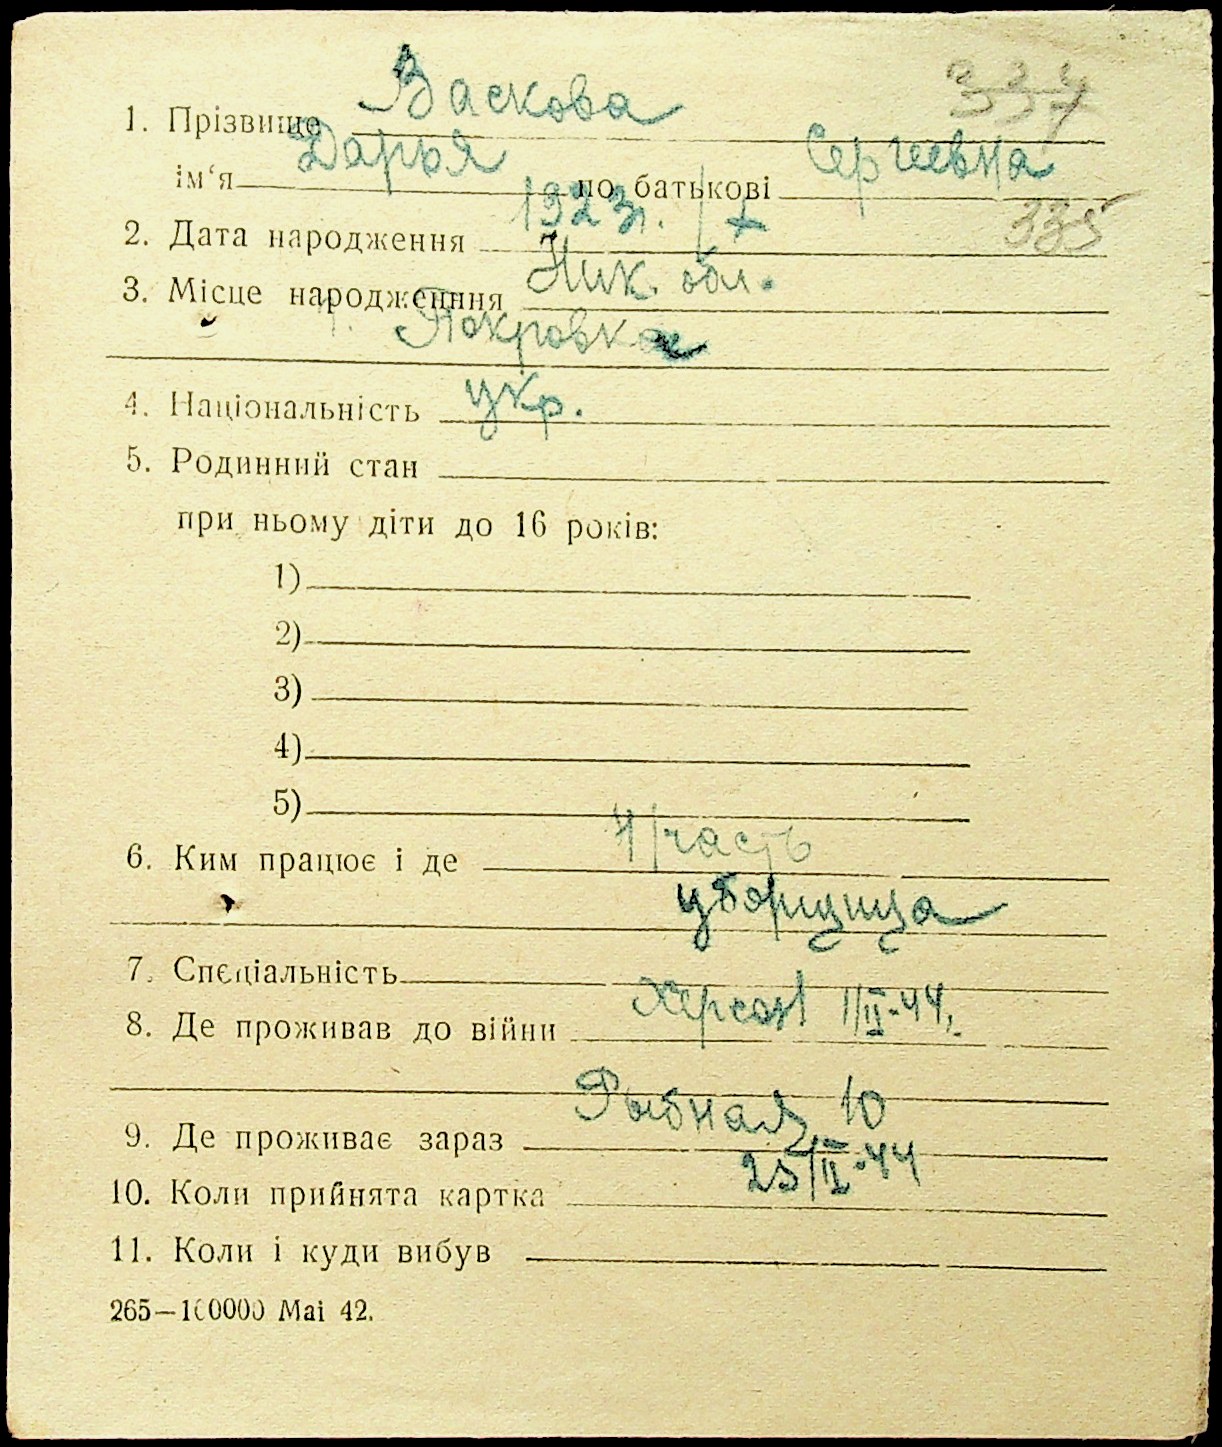 337
1. Прізвище Васкова
ім‘я Дарья по батькові Сергеевна
2. Дата народження 1923г.
335
3. Місце народженння Ник. обл.
Покровка
4. Національність укр.
5. Родинний стан
при ньому діти до 16 років:
1)
2)
3)
4)
5)
6. Ким працює і де часть
уборщица
7. Спєціальність
8. Де проживав до війни Херсон 1/II-44.
9. Де проживає зараз Рыбная 10
10. Коли прийнята картка 25/II-44
11. Коли і куди вибув
265—100000 Маі 42.